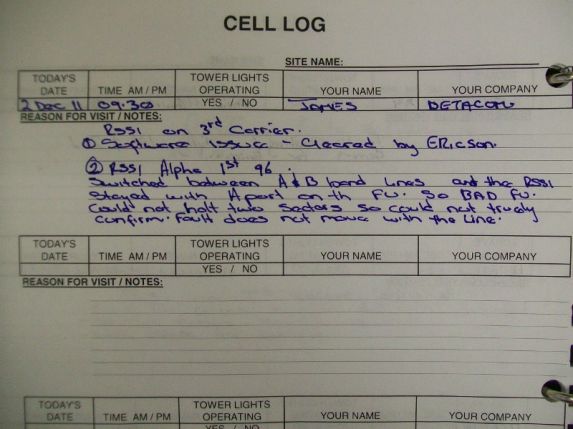 CELL LOG
SITE NAME:
TODAY'S DATE TIME AM / PM TOWER LIGHTS OPERATING YOUR NAME YOUR COMPANY
2 Dec 11 09.30 YES / NO JAMES DETACOM
REASON FOR VISIT / NOTES:
RSSI on 3rd Carrier.
① Software issue - Cleared by Ericson.
② RSSI Alpha 1st 96.
Switched between A & B band lines and the RSSI
Stayed with A port on th FU. So BAD FU.
Could not halt two Sectors so could not truely
confirm. Fault does not move with the Line.
TODAY'S DATE TIME AM / PM TOWER LIGHTS OPERATING YOUR NAME YOUR COMPANY
YES / NO
REASON FOR VISIT / NOTES:
TODAY'S DATE TIME AM / PM TOWER LIGHTS OPERATING YOUR NAME YOUR COMPANY
YES / NO